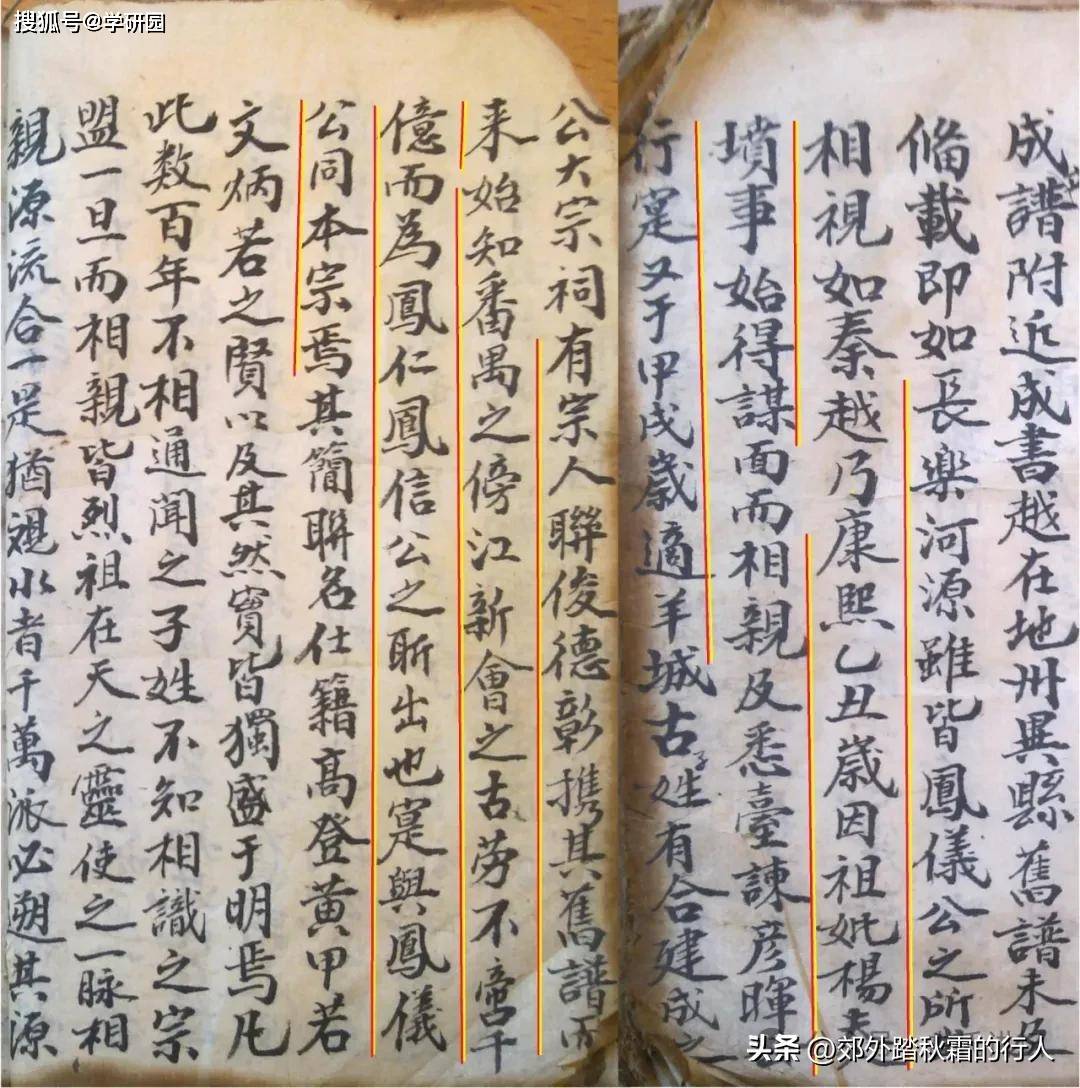 搜狐号@学研园
成譜附近成書越在地州異縣舊譜未及
俻載即如長樂河源雖皆鳳儀公之所
相視如秦越乃康熙乙丑歲因祖妣楊夫
墳事始得謀面而相親及悉臺諫彦暉
行寔又于甲戌歲適羊城古姓有合建成之
公大宗祠有宗人聯俊德彰携其舊譜而
来始知番禺之傍江新會之古劳不啻千
億而為鳳仁鳳信公之所出也寔與鳳儀
公同本宗焉其簡聯名仕籍高登黄甲若
文炳若之賢以及其然竇皆獨盛于明焉凡
此数百年不相通聞之子姓不知相識之宗
盟一旦而相親皆烈祖在天之靈使之一脉相
親源流合一是猶視水者千萬派必遡其源
头条@郊外踏秋霜的行人